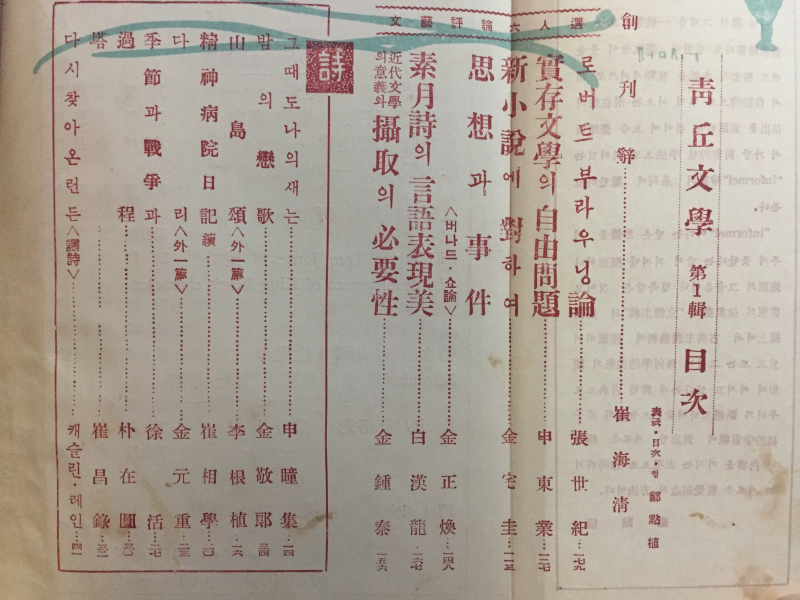 靑丘文學 第1輯 目次
表紙·目次·컽 鄭點植
創刊辭……崔海淸
文藝評論六人選
로버트 브라우닝論……張世紀…一七九
實存文學의 自由問題……申東業…一二七
新小說에 對하여……金宅圭…一一三
思想과 事件〈버나드·쇼論〉……金正煥…一四八
素月詩의 言語表現美……白漢龍…一六七
近代文學의意義와 攝取의 必要性……金鍾泰…一五六
詩
그때도 나의 새는……申瞳集…一四
밤의 戀歌……金敬郞…二四
山島頌〈外一篇〉……李根植…一六
精神病院日記 續……崔相學…二〇
다리〈外一篇〉……金元重…二三
季節과 戰爭과……徐活…二七
過程……朴在圓
塔……崔昌錄
다시 찾아온 런든〈譯詩〉……캐슬린·레인…四一